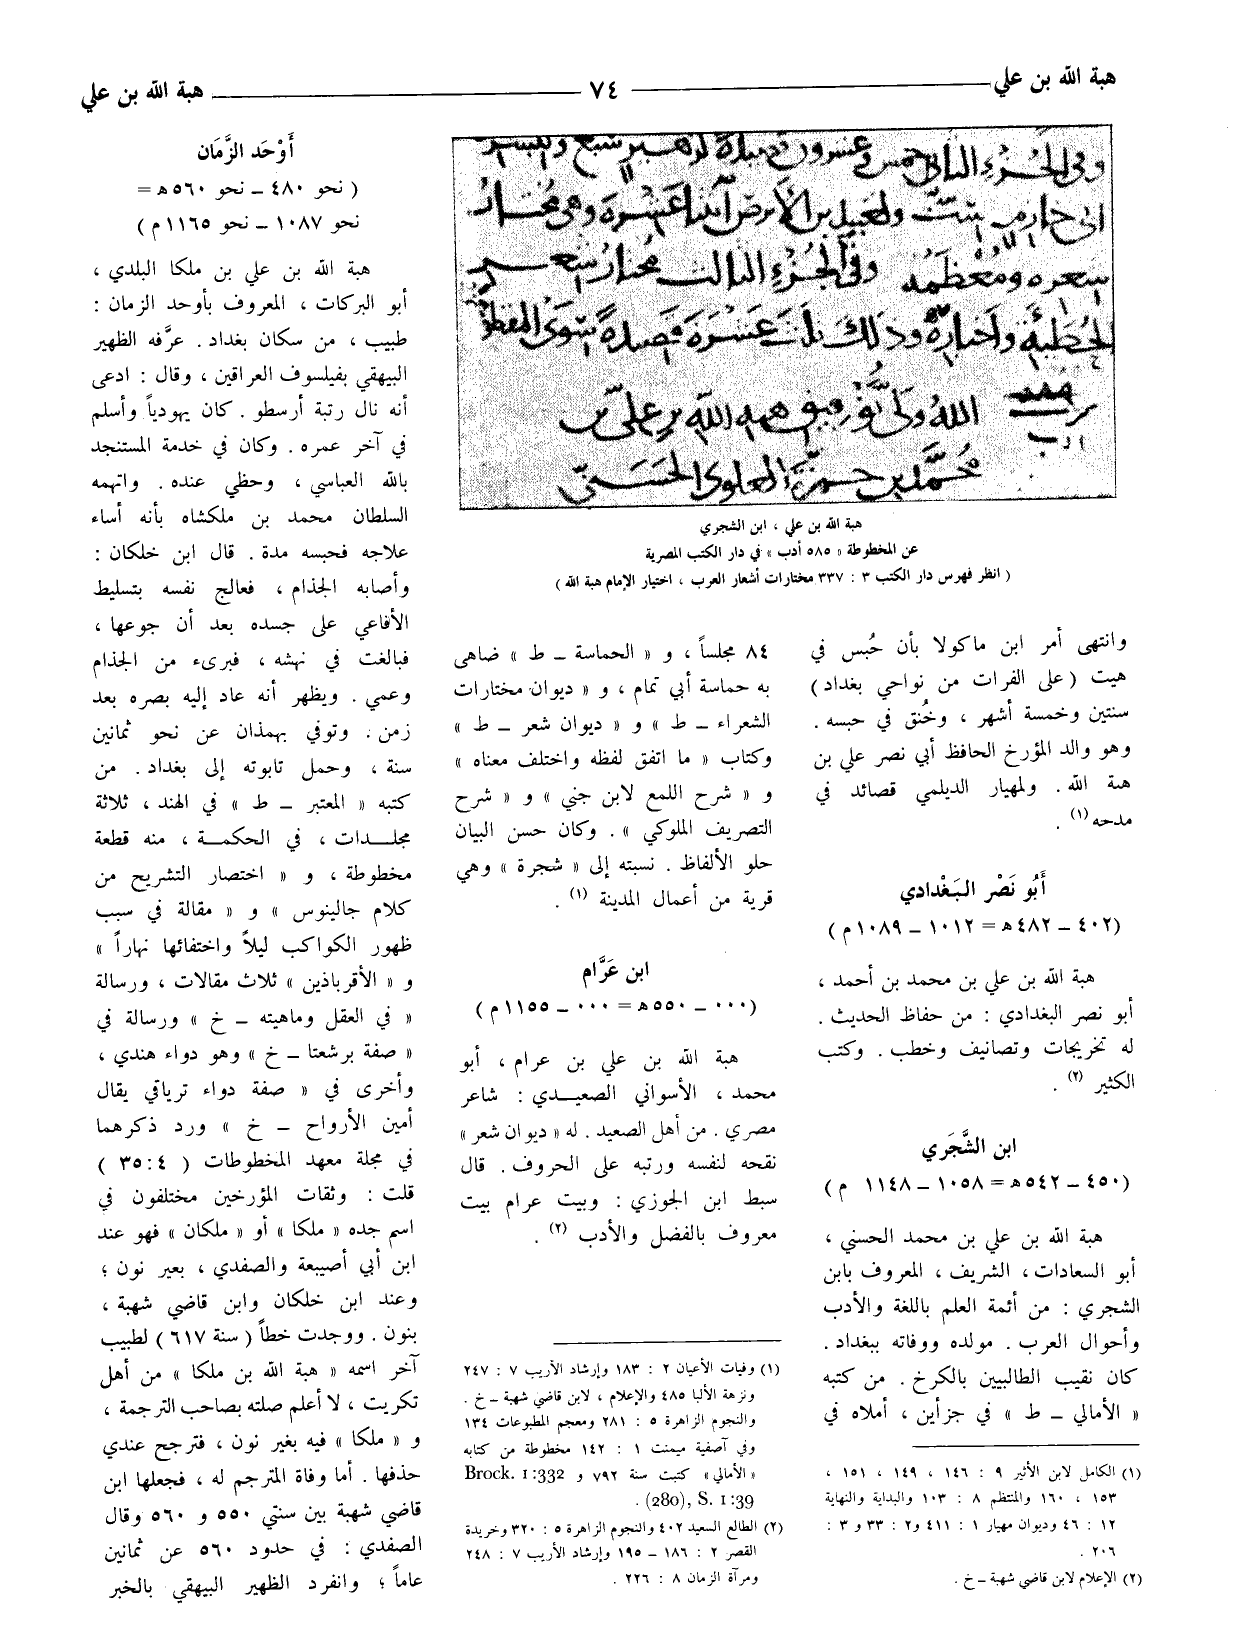 هبة الله بن علي
٧٤
هبة الله بن علي
الله ولى توفيق هبه الله بن علي بن
محمد بن حمزة العلوي الحسني
هبة الله بن علي ، ابن الشجري
عن المخطوطة « ٥٨٥ أدب » في دار الكتب المصرية
( انظر فهرس دار الكتب ٣ : ٣٣٧ مختارات أشعار العرب ، اختيار الإمام هبة الله )
وانتهى أمر ابن ماكولا بأن حُبس في
هيت (على الفرات من نواحي بغداد)
سنتين وخمسة أشهر ، وخُنق في حبسه .
وهو والد المؤرخ الحافظ أبي نصر علي بن
هبة الله . ولمهيار الديلمي قصائد في
مدحه (١) .
أَبُو نَصْر البَغْدادي
(٤٠٢ ــ ٤٨٢ هـ = ١٠١٢ ــ ١٠٨٩ م)
هبة الله بن علي بن محمد بن أحمد ،
أبو نصر البغدادي : من حفاظ الحديث .
له تخريجات وتصانيف وخطب . وكتب
الكثير (٢) .
ابن الشَّجَري
(٤٥٠ ــ ٥٤٢ هـ = ١٠٥٨ ــ ١١٤٨ م)
هبة الله بن علي بن محمد الحسني ،
أبو السعادات ، الشريف ، المعروف بابن
الشجري : من أئمة العلم باللغة والأدب
وأحوال العرب . مولده ووفاته ببغداد .
كان نقيب الطالبيين بالكرخ . من كتبه
« الأمالي ــ ط » في جزأين ، أملاه في
(١) الكامل لابن الأثير ٩ : ١٤٦ ، ١٤٩ ، ١٥١ ،
١٥٣ ، ١٦٠ والمنتظم ٨ : ١٠٣ والبداية والنهاية
١٢ : ٤٦ وديوان مهيار ١ : ٤١١ و٢ : ٣٣ و ٣ :
٢٠٦ .
(٢) الإعلام لابن قاضي شهبة ــ خ .
٨٤ مجلساً ، و « الحماسة ــ ط » ضاهى
به حماسة أبي تمام ، و « ديوان مختارات
الشعراء ــ ط » و « ديوان شعر ــ ط »
وكتاب « ما اتفق لفظه واختلف معناه »
و « شرح اللمع لابن جني » و « شرح
التصريف الملوكي » . وكان حسن البيان
حلو الألفاظ . نسبته إلى « شجرة » وهي
قرية من أعمال المدينة (١) .
ابن عَرَّام
(٠٠٠ ــ ٥٥٠ هـ = ٠٠٠ ــ ١١٥٥ م)
هبة الله بن علي بن عرام ، أبو
محمد ، الأسواني الصعيدي : شاعر
مصري . من أهل الصعيد . له « ديوان شعر »
نقحه لنفسه ورتبه على الحروف . قال
سبط ابن الجوزي : وبيت عرام بيت
معروف بالفضل والأدب (٢) .
(١) وفيات الأعيان ٢ : ١٨٣ وإرشاد الأريب ٧ : ٢٤٧
ونزهة الألبا ٤٨٥ والإعلام ، لابن قاضي شهبة ــ خ .
والنجوم الزاهرة ٥ : ٢٨١ ومعجم المطبوعات ١٣٤
وفي آصفية ميمنت ١ : ١٤٢ مخطوطة من كتابه
« الأمالي » كتبت سنة ٧٩٢ و Brock. 1:332
(280), S. 1:39 .
(٢) الطالع السعيد ٤٠٢ والنجوم الزاهرة ٥ : ٣٢٠ وخريدة
القصر ٢ : ١٨٦ ــ ١٩٥ وإرشاد الأريب ٧ : ٢٤٨
ومرآة الزمان ٨ : ٢٢٦ .
أَوْحَد الزَّمَان
( نحو ٤٨٠ ــ نحو ٥٦٠ هـ =
نحو ١٠٨٧ ــ نحو ١١٦٥ م )
هبة الله بن علي بن ملكا البلدي ،
أبو البركات ، المعروف بأوحد الزمان :
طبيب ، من سكان بغداد . عرَّفه الظهير
البيهقي بفيلسوف العراقين ، وقال : ادعى
أنه نال رتبة أرسطو . كان يهودياً وأسلم
في آخر عمره . وكان في خدمة المستنجد
بالله العباسي ، وحظي عنده . واتهمه
السلطان محمد بن ملكشاه بأنه أساء
علاجه فحبسه مدة . قال ابن خلكان :
وأصابه الجذام ، فعالج نفسه بتسليط
الأفاعي على جسده بعد أن جوعها ،
فبالغت في نهشه ، فبرىء من الجذام
وعمي . ويظهر أنه عاد إليه بصره بعد
زمن . وتوفي بهمذان عن نحو ثمانين
سنة ، وحمل تابوته إلى بغداد . من
كتبه « المعتبر ــ ط » في الهند ، ثلاثة
مجلدات ، في الحكمة ، منه قطعة
مخطوطة ، و « اختصار التشريح من
كلام جالينوس » و « مقالة في سبب
ظهور الكواكب ليلاً واختفائها نهاراً »
و « الأقرباذين » ثلاث مقالات ، ورسالة
« في العقل وماهيته ــ خ » ورسالة في
« صفة برشعثا ــ خ » وهو دواء هندي ،
وأخرى في « صفة دواء ترياقي يقال
أمين الأرواح ــ خ » ورد ذكرهما
في مجلة معهد المخطوطات ( ٤ : ٣٥ )
قلت : وثقات المؤرخين مختلفون في
اسم جده « ملكا » أو « ملكان » فهو عند
ابن أبي أصيبعة والصفدي ، بغير نون ؛
وعند ابن خلكان وابن قاضي شهبة ،
بنون . ووجدت خطاً ( سنة ٦١٧ ) لطبيب
آخر اسمه « هبة الله بن ملكا » من أهل
تكريت ، لا أعلم صلته بصاحب الترجمة ،
و « ملكا » فيه بغير نون ، فترجح عندي
حذفها . أما وفاة المترجم له ، فجعلها ابن
قاضي شهبة بين سنتي ٥٥٠ و ٥٦٠ وقال
الصفدي : في حدود ٥٦٠ عن ثمانين
عاماً ؛ وانفرد الظهير البيهقي بالخبر